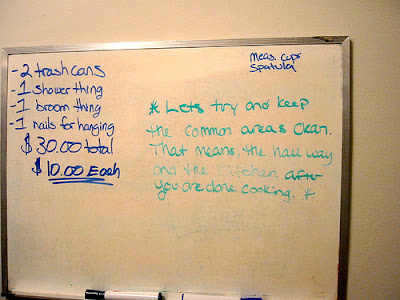 - 2 trash cans
- 1 shower thing
- 1 broom thing
- 1 nails for hanging
$ 30.00 total
$ 10.00 Each
Meas. cups
Spatula
* Lets try and keep
the common areas clean.
That means, the hall way
and the kitchen after
you are done cooking. *